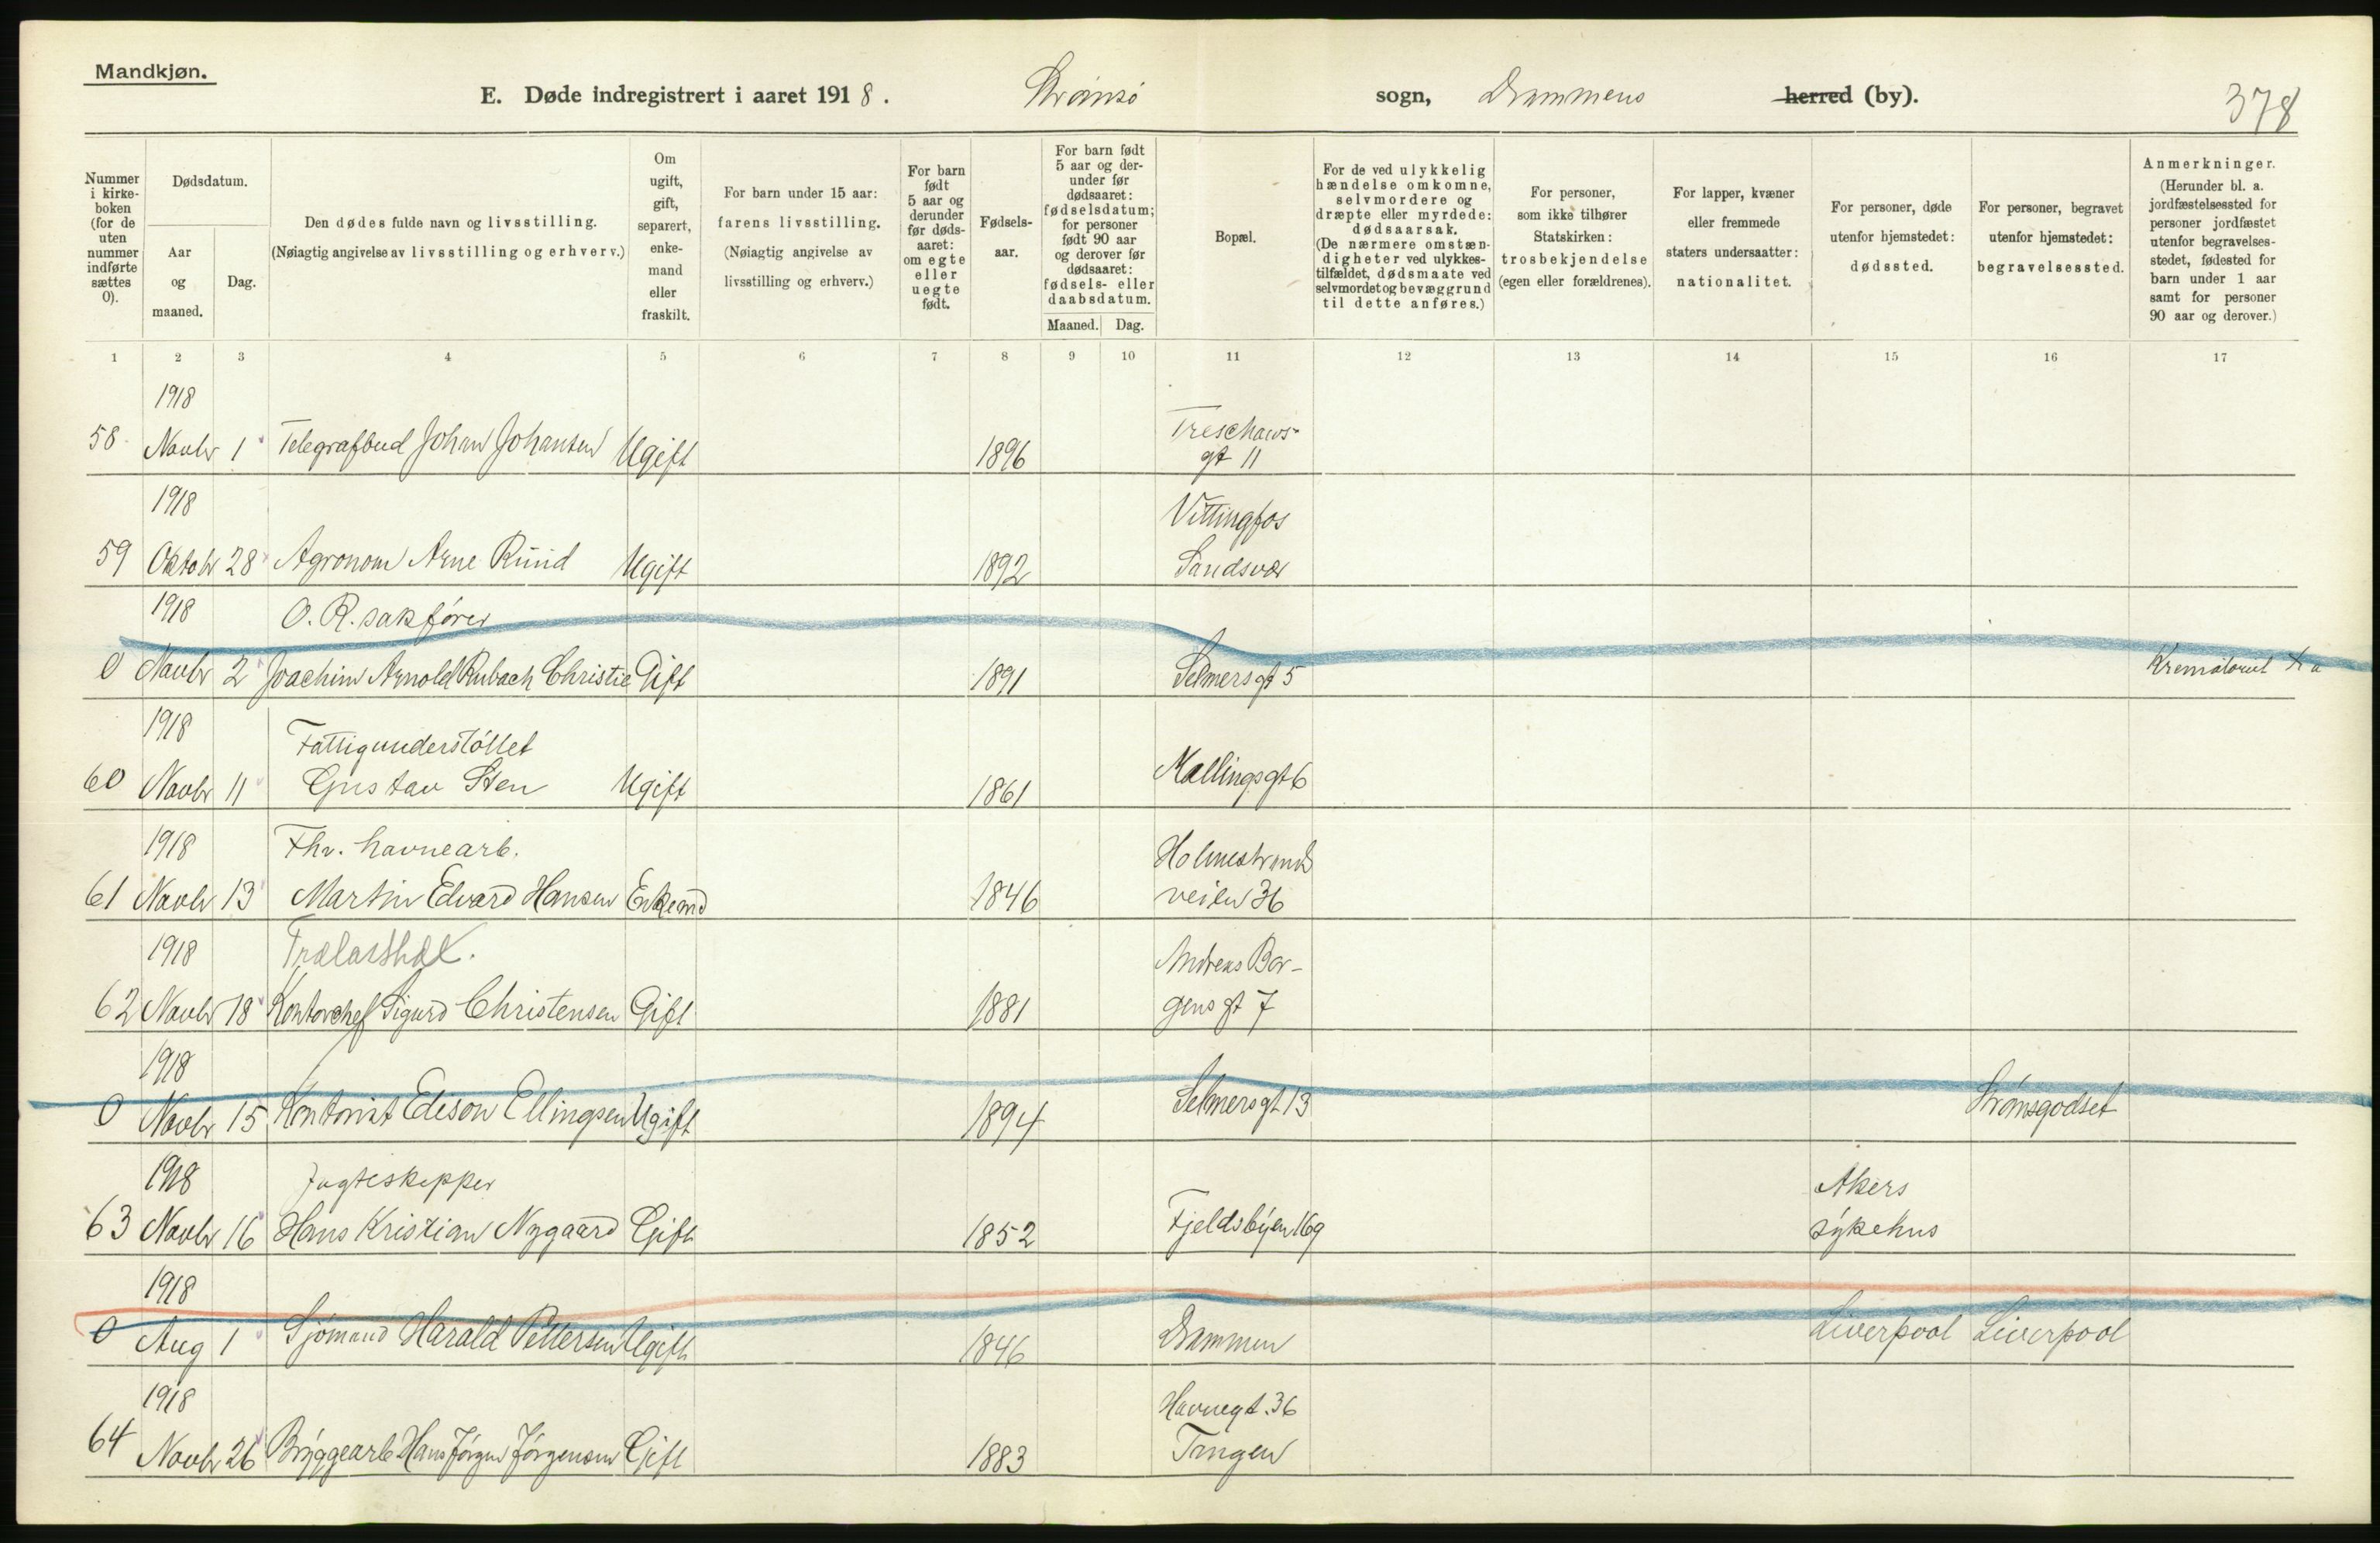 Mandkjøn.
E. Døde indregistrert i aaret 1918. Strømsø sogn, Drammens herred (by).
378
Nummer i kirke-boken (for de uten nummer indførte sættes 0).
Dødsdatum.
Aar og maaned.
Dag.
Den dødes fulde navn og livsstilling.
(Nøiagtig angivelse av livsstilling og erhverv.)
Om ugift, gift, separert, enke-mand eller fraskilt.
For barn under 15 aar:
farens livsstilling.
(Nøiagtig angivelse av livsstilling og erhverv.)
For barn født 5 aar og derunder før døds-aaret: om egte eller uegte født.
Fødsels-aar.
For barn født 5 aar og der-under før dødsaaret: fødselsdatum; for personer født 90 aar og derover før dødsaaret: fødsels- eller daabsdatum.
Maaned. Dag.
Bopæl.
For de ved ulykkelig hændelse omkomne, selvmordere og dræpte eller myrdede: dødsaarsak. (De nærmere omstæn-digheter ved ulykkes-tilfældet, dødsmaate ved selvmordet og bevæggrund til dette anføres.)
For personer, som ikke tilhører Statskirken: trosbekjendelse (egen eller forældrenes).
For lapper, kvæner eller fremmede staters undersaatter: nationalitet.
For personer, døde utenfor hjemstedet: dødssted.
For personer, begravet utenfor hjemstedet: begravelsessted.
Anmerkninger. (Herunder bl. a. jordfæstelsessted for personer jordfæstet utenfor begravelses-stedet, fødested for barn under 1 aar samt for personer 90 aar og derover.)
1 2 3 4 5 6 7 8 9 10 11 12 13 14 15 16 17
1918 Treschows-
58 Novbr 1 Telegrafbud Johan Johansen Ugift 1896 gt 11
1918 Vittingfos
59 Oktobr 28 Agronom Arne Ruud Ugift 1892 Sandsvær
1918 O.R. sakfører
0 Novbr 2 Joachim Arnold Rubach Christie Gift 1891 Selmersgt 5
1918 Fattigunderstøttet
60 Novbr 11 Gustav Sten Ugift 1861 Mallingsgt 6
1918 Fhv. havnearb. Holmestrands
61 Novbr 13 Martin Edvard Hansen Enkemd 1846 veien 36
1918 Trælasthdl. Andreas Bor-
62 Novbr 18 Kontorchef Sigurd Christensen Gift 1881 gens gt 7
1918
0 Novbr 15 Kontorist Edison Ellingsen Ugift 1894 Selmersgt 13 Strømsgodset
1918 Jagteskipper Akers
63 Novbr 16 Hans Kristian Nygaard Gift 1852 Fjeldsbyen 169 sykehus
1918
0 Aug 1 Sjømand Harald Pettersen Ugift 1846 Drammen Liverpool Liverpool
1918 Havnegt. 36
64 Novbr 26 Bryggearb Hans Jørgen Jørgensen Gift 1883 Tangen